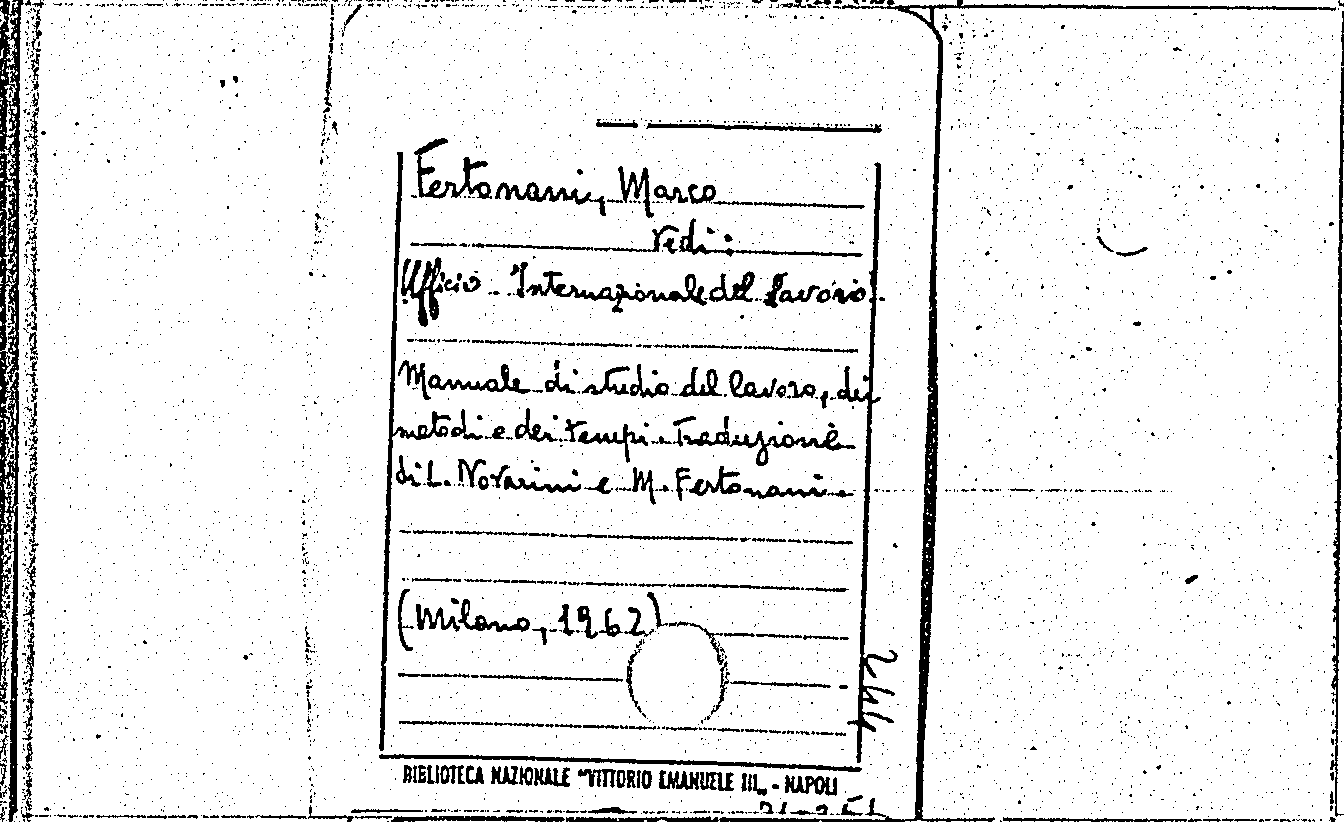 Fertonani, Marco
Vedi:
Ufficio Internazionale del Lavoro.
Manuale di studio del lavoro, dei
metodi e dei tempi. Traduzione
di L. Novarini e M. Fertonani.
(Milano, 1962)
244
BIBLIOTECA NAZIONALE "VITTORIO EMANUELE III„ - NAPOLI